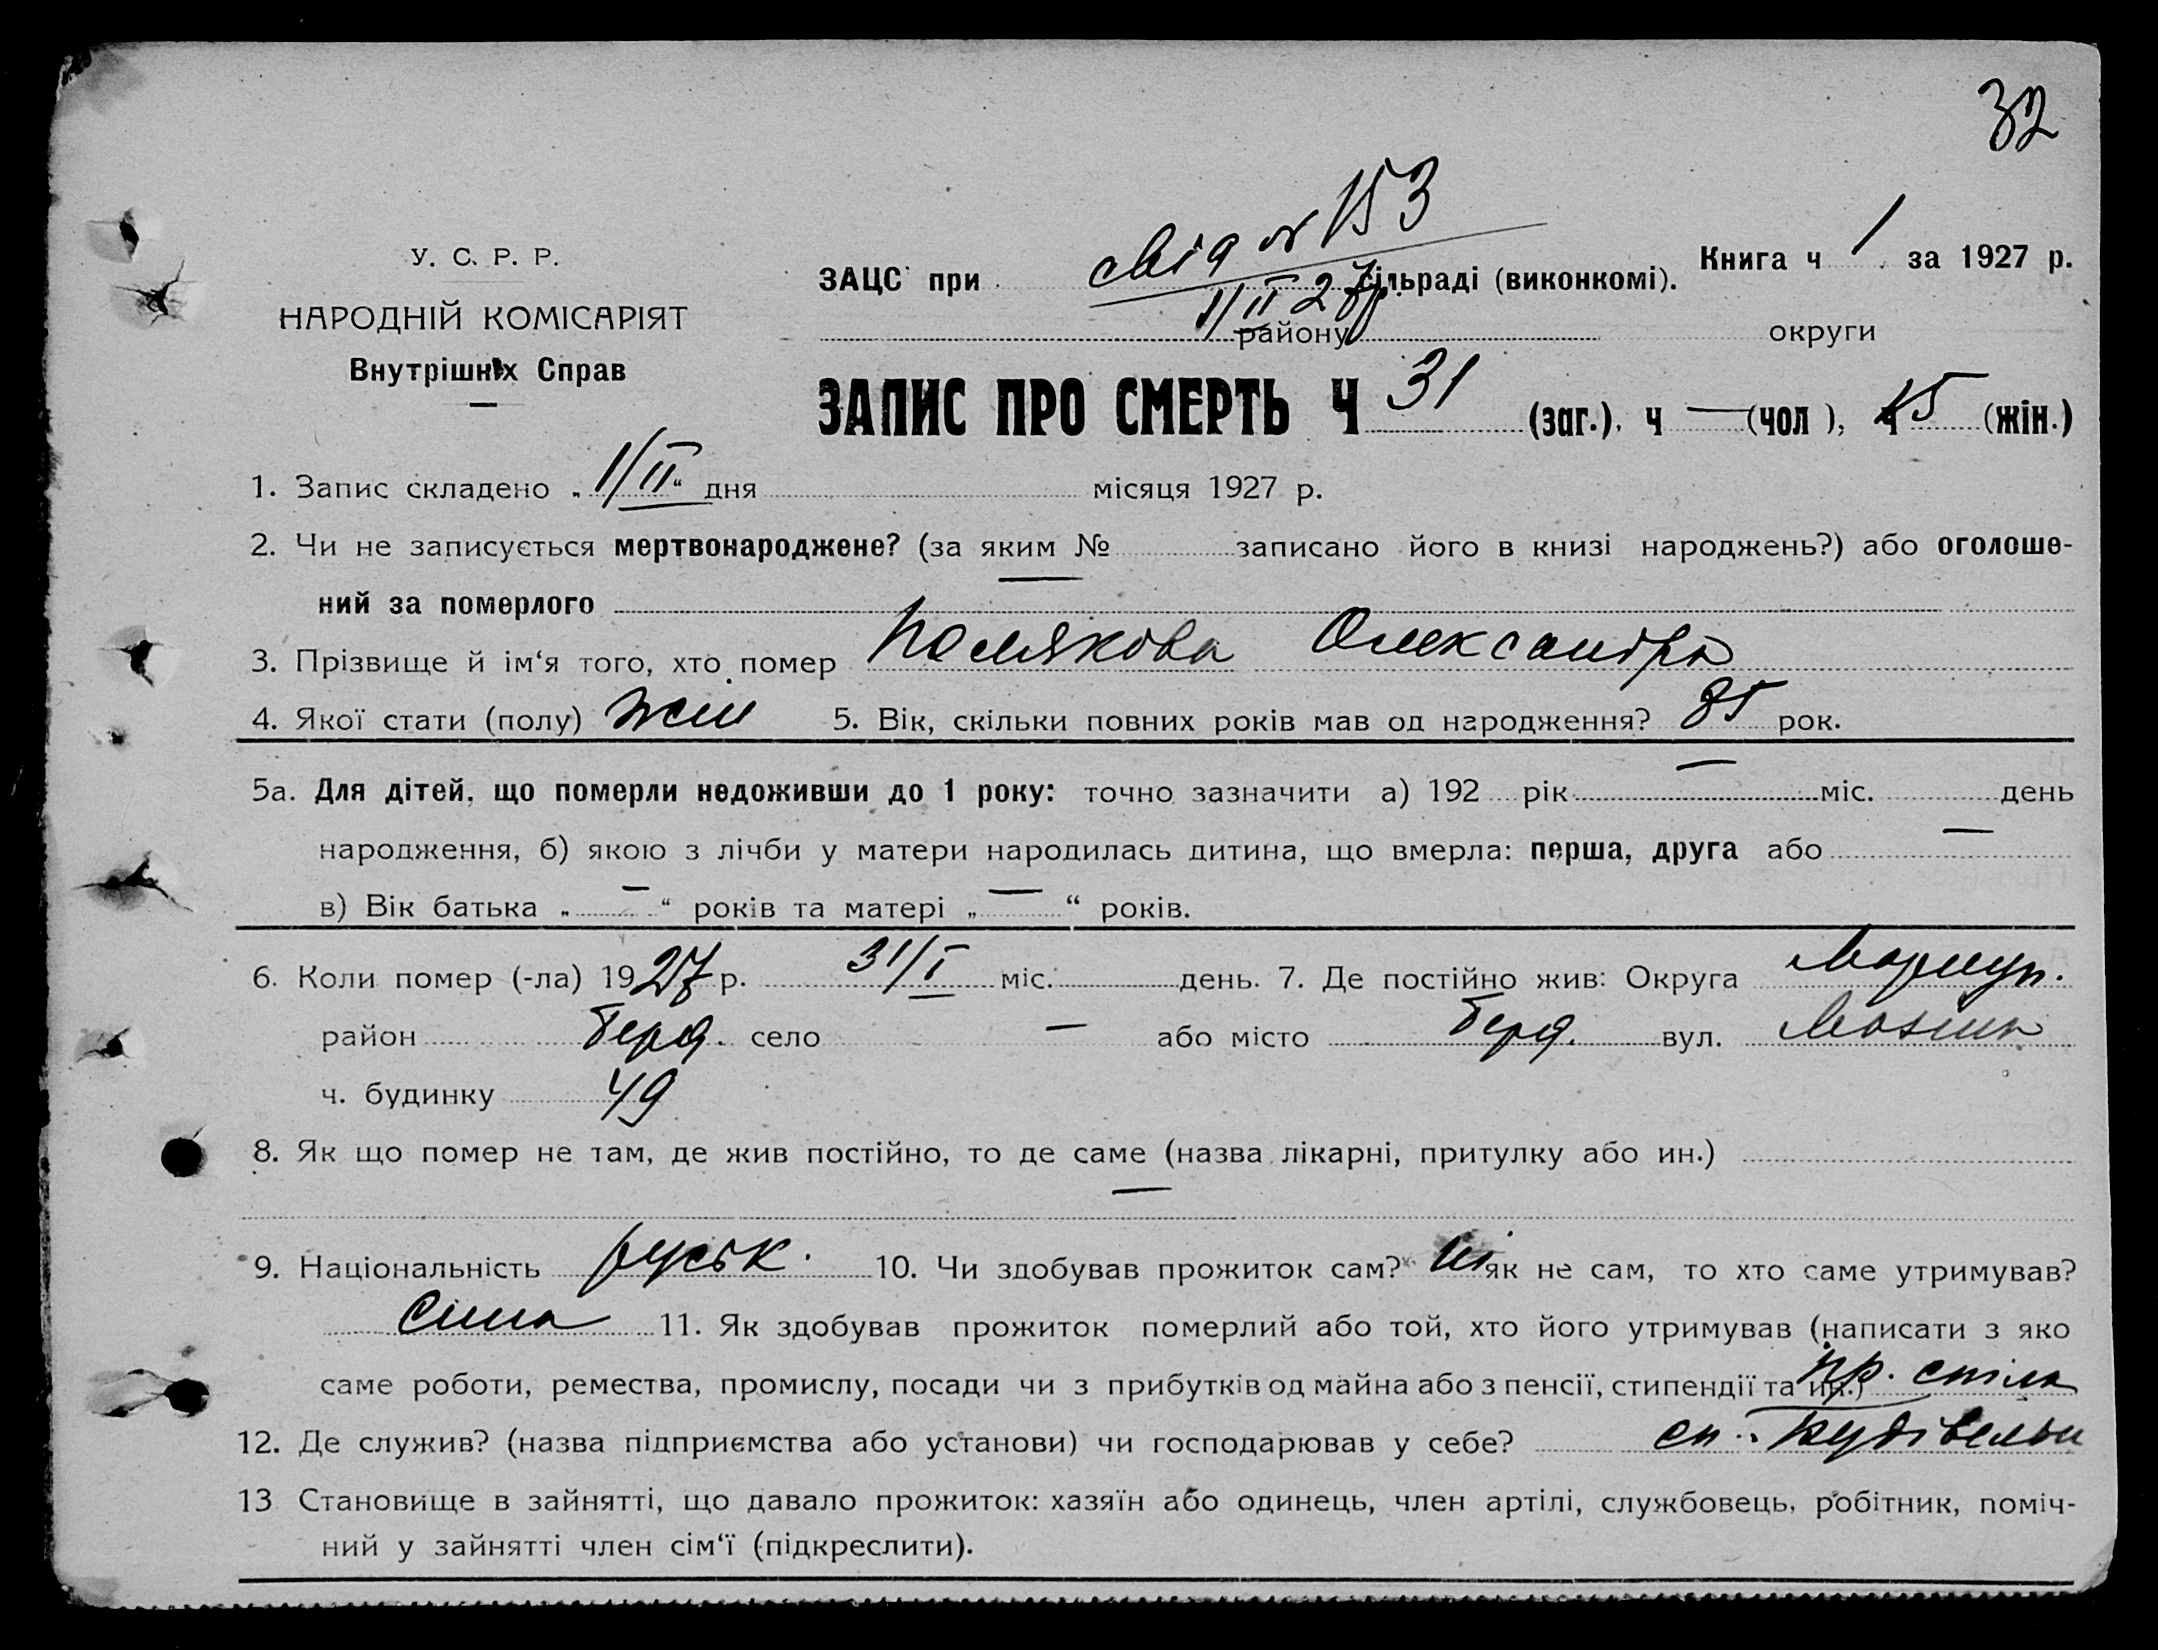 32
У. С. Р. Р.
НАРОДНІЙ КОМІСАРІЯТ
Внутрішніх Справ
свід № 153
1/II 27р.
ЗАЦС при сільраді (виконкомі). Книга ч 1 за 1927 р.
району округи
ЗАПИС ПРО СМЕРТЬ Ч 31 (заг.), ч — (чол), ч 15 (жін.)
1. Запис складено „1/II“ дня місяця 1927 р.
2. Чи не записується мертвонароджене? (за яким № записано його в книзі народжень?) або оголоше-
ний за померлого —
3. Прізвище й ім‘я того, хто помер Полякова Олександра
4. Якої стати (полу) жін 5. Вік, скільки повних років мав од народження? 85 рок.
5а. Для дітей, що померли недоживши до 1 року: точно зазначити а) 192 рік — міс. день
народження, б) якою з лічби у матери народилась дитина, що вмерла: перша, друга або —
в) Вік батька „—“ років та матері „—“ років.
6. Коли помер (-ла) 1927 р. 31/I міс. день. 7. Де постійно жив: Округа Маріуп.
район Берд. село — або місто Берд. вул.
ч. будинку 49
8. Як що помер не там, де жив постійно, то де саме (назва лікарні, притулку або ин.)
—
9. Національність руськ. 10. Чи здобував прожиток сам? ні як не сам, то хто саме утримував?
11. Як здобував прожиток померлий або той, хто його утримував (написати з яко
саме роботи, ремества, промислу, посади чи з прибутків од майна або з пенсії, стипендії та ин.) пр.
12. Де служив? (назва підприємства або установи) чи господарював у себе? сп.
13 Становище в зайнятті, що давало прожиток: хазяїн або одинець, член артілі, службовець, робітник, поміч-
ний у зайнятті член сім‘ї (підкреслити).